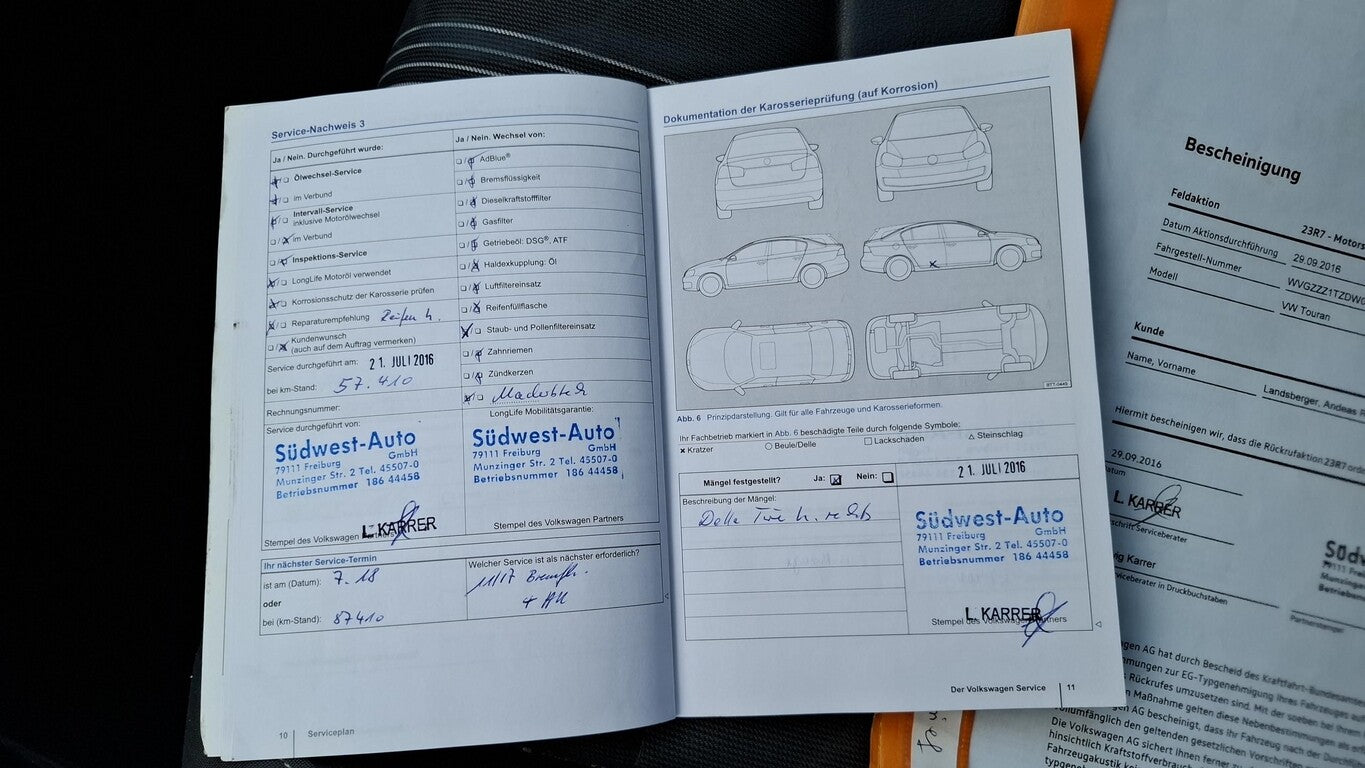 Service-Nachweis 3
Ja / Nein. Durchgeführt wurde:
Ölwechsel-Service
im Verbund
Intervall-Service
inklusive Motorölwechsel
im Verbund
Inspektions-Service
LongLife Motoröl verwendet
Korrosionsschutz der Karosserie prüfen
Reparaturempfehlung Reifen h.
Kundenwunsch
(auch auf dem Auftrag vermerken)
Service durchgeführt am: 21. JULI 2016
bei km-Stand: 57.410
Rechnungsnummer:
Service durchgeführt von:
Südwest-Auto
GmbH
79111 Freiburg
Munzinger Str. 2 Tel. 45507-0
Betriebsnummer 186 44458
L. KARRER
Stempel des Volkswagen Partners
Ja / Nein. Wechsel von:
AdBlue®
Bremsflüssigkeit
Dieselkraftstofffilter
Gasfilter
Getriebeöl: DSG®, ATF
Haldexkupplung: Öl
Luftfiltereinsatz
Reifenfüllflasche
Staub- und Pollenfiltereinsatz
Zahnriemen
Zündkerzen
LongLife Mobilitätsgarantie:
Südwest-Auto
GmbH
79111 Freiburg
Munzinger Str. 2 Tel. 45507-0
Betriebsnummer 186 44458
Stempel des Volkswagen Partners
Ihr nächster Service-Termin
ist am (Datum): 7. 18
oder
bei (km-Stand): 87410
Welcher Service ist als nächster erforderlich?
11/17 Bremsfl.
+ AU
10 Serviceplan
Dokumentation der Karosserieprüfung (auf Korrosion)
B7T-0449
Abb. 6 Prinzipdarstellung. Gilt für alle Fahrzeuge und Karosserieformen.
Ihr Fachbetrieb markiert in Abb. 6 beschädigte Teile durch folgende Symbole:
× Kratzer ○ Beule/Delle □ Lackschaden △ Steinschlag
Mängel festgestellt? Ja: Nein:
21. JULI 2016
Beschreibung der Mängel:
Delle Türe h. rechts
Südwest-Auto
GmbH
79111 Freiburg
Munzinger Str. 2 Tel. 45507-0
Betriebsnummer 186 44458
L. KARRER
Stempel des Volkswagen Partners
Der Volkswagen Service 11
Bescheinigung
Feldaktion
23R7 - Motors
Datum Aktionsdurchführung 29.09.2016
Fahrgestell-Nummer WVGZZZ1TZDW0
Modell VW Touran
Kunde
Name, Vorname Landsberger, Andeas
Hiermit bescheinigen wir, dass die Rückrufaktion 23R7 ord
29.09.2016
atum
L. KARRER
schrift Serviceberater
ig Karrer
viceberater in Druckbuchstaben
Südw
79111 Frei
Munzinge
Betriebs
Partnerstempel
gen AG hat durch Bescheid des Kraftfahrt-Bundesam
mmungen zur EG-Typgenehmigung Ihres Fahrzeuges
Rückrufes umzusetzen sind. Mit der soeben bei Ihrem
n Maßnahme gelten diese Nebenbestimmungen als
gen AG bescheinigt, dass ihr Fahrzeug nach der Durchfü
ollumfänglich den geltenden gesetzlichen Vorschriften
Die Volkswagen AG sichert Ihnen ferner zu
hinsichtlich Kraftstoffverbrauc
Fahrzeugakustik keine
typgeneh